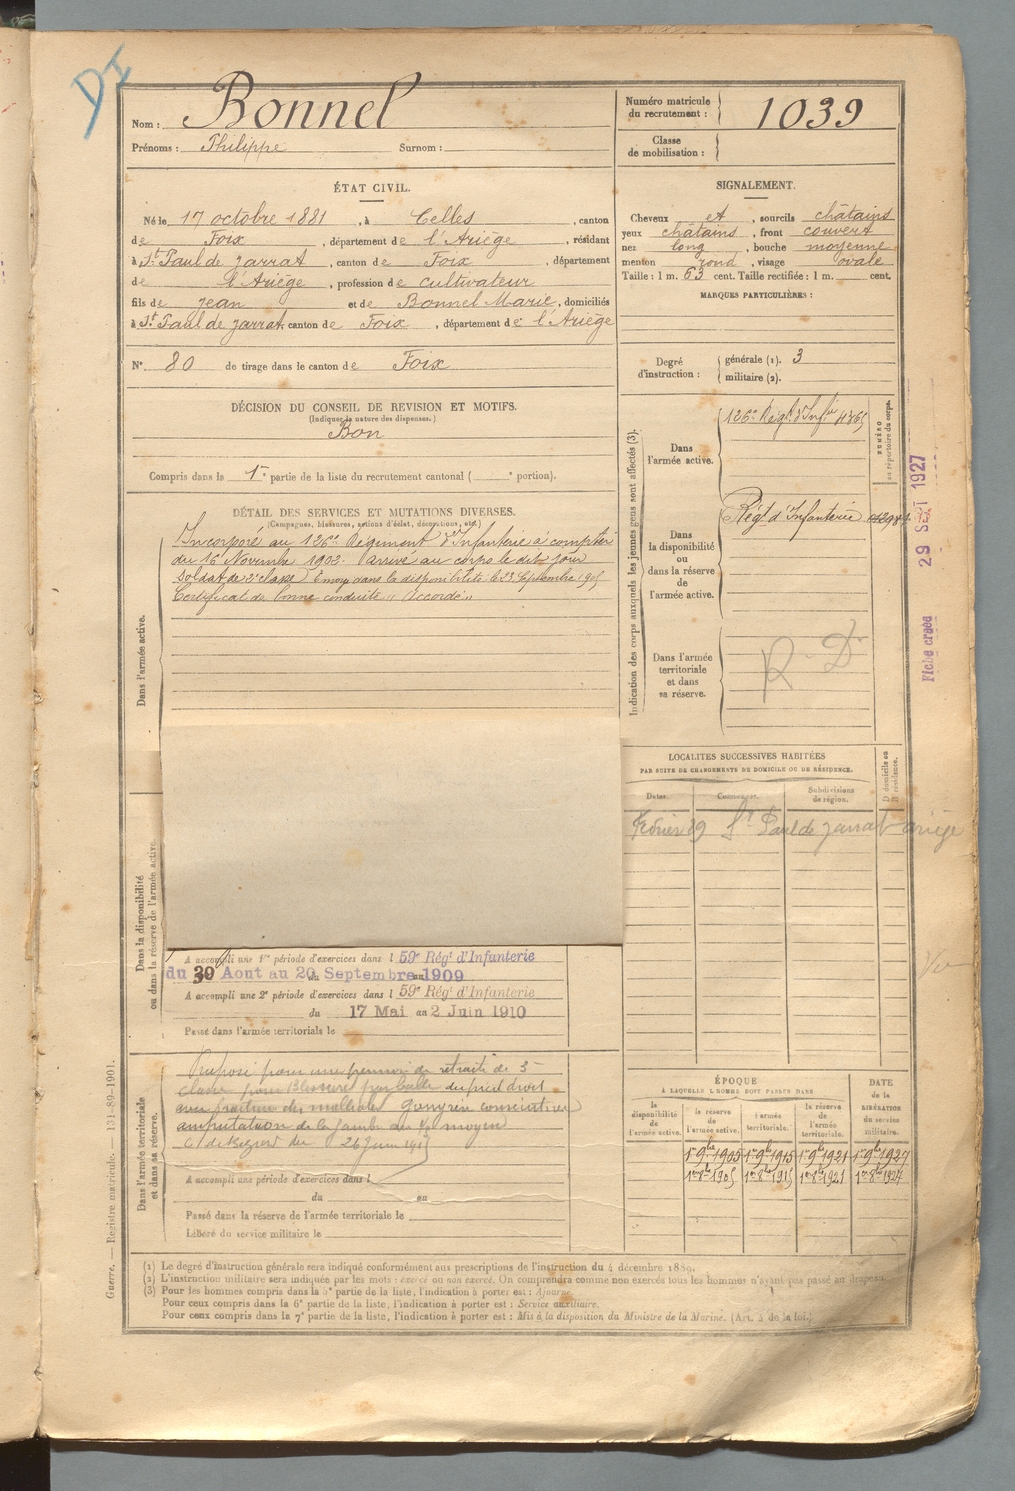 DI
Nom : Bonnel
Prénoms : Philippe Surnom :
Numéro matricule du recrutement : 1039
Classe de mobilisation :
ÉTAT CIVIL.
Né le 17 octobre 1881, à Celles, canton
de Foix, département de l'Ariège, résidant
à St Paul de Jarrat, canton de Foix, département
de l'Ariège, profession de cultivateur
fils de Jean et de Bonnel Marie, domiciliés
à St Paul de Jarrat, canton de Foix, département de l'Ariège
SIGNALEMENT.
Cheveux et, sourcils châtains
yeux châtains, front couvert
nez long, bouche moyenne
menton rond, visage ovale
Taille : 1 m. 63 cent. Taille rectifiée : 1 m. cent.
MARQUES PARTICULIÈRES :
N° 80 de tirage dans le canton de Foix
Degré d'instruction : générale (1). 3
militaire (2).
DÉCISION DU CONSEIL DE REVISION ET MOTIFS.
(Indiquer la nature des dispenses.)
Bon
Compris dans le 1re partie de la liste du recrutement cantonal ( e portion).
DÉTAIL DES SERVICES ET MUTATIONS DIVERSES.
(Campagnes, blessures, actions d'éclat, décorations, etc.)
Dans l'armée active.
Incorporé au 126e Régiment d'Infanterie à compter
du 16 Novembre 1902. Arrivé au corps le dit jour
soldat de 2e classe Envoyé dans la disponibilité le 23 Septembre 1905
Certificat de bonne conduite "Accordé"
Indication des corps auxquels les jeunes gens sont affectés (3).
NUMÉRO au répertoire du corps.
Dans l'armée active.
126e Régt d'Infie
Dans la disponibilité ou dans la réserve de l'armée active.
Régt d'Infanterie
Dans l'armée territoriale et dans sa réserve.
R. D.
Fiche créée 29 SEPT 1927
LOCALITÉS SUCCESSIVES HABITÉES
PAR SUITE DE CHANGEMENTS DE DOMICILE OU DE RÉSIDENCE.
Dates. Communes. Subdivisions de région. D domicile ou R résidence.
St Paul de Jarrat ariège
Dans la disponibilité ou dans la réserve de l'armée active.
A accompli une 1re période d'exercices dans l 59e Régt d'Infanterie
du 30 Aout au 20 Septembre au 1909
A accompli une 2e période d'exercices dans l 59e Régt d'Infanterie
du 17 Mai au 2 Juin 1910
Passé dans l'armée territoriale le
Dans l'armée territoriale et dans sa réserve.
Proposé pour une pension de retraite de 5e
classe pour Blessure par balle du pied droit
avec fraction des malléoles gangrène consécutive
amputation de la jambe au moyen
26 Juin 1915
A accompli une période d'exercices dans l
du au
Passé dans la réserve de l'armée territoriale le
Libéré du service militaire le
ÉPOQUE
À LAQUELLE L'HOMME DOIT PASSER DANS
la disponibilité de l'armée active. la réserve de l'armée active. l'armée territoriale. la réserve de l'armée territoriale.
DATE de la LIBÉRATION du service militaire.
1er 9bre 1905 1er 9bre 1915 1er 9bre 1921 1er 9bre 1927
1er 8bre 1905 1er 8bre 1915 1er 8bre 1921 1er 8bre 1927
(1) Le degré d'instruction générale sera indiqué conformément aux prescriptions de l'instruction du 4 décembre 1889.
(2) L'instruction militaire sera indiquée par les mots : exercé ou non exercé. On comprendra comme non exercés tous les hommes n'ayant pas passé au drapeau.
(3) Pour les hommes compris dans la 5e partie de la liste, l'indication à porter est : Ajourné.
Pour ceux compris dans la 6e partie de la liste, l'indication à porter est : Service auxiliaire.
Pour ceux compris dans la 7e partie de la liste, l'indication à porter est : Mis à la disposition du Ministre de la Marine. (Art. 4 de la loi.)
Guerre. — Registre matricule. — 131-89-1901.